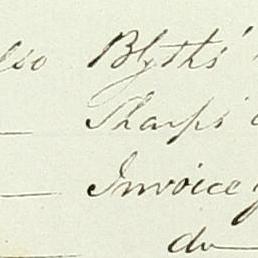 also Blyths'
— Sharps'
— Invoice
— do —